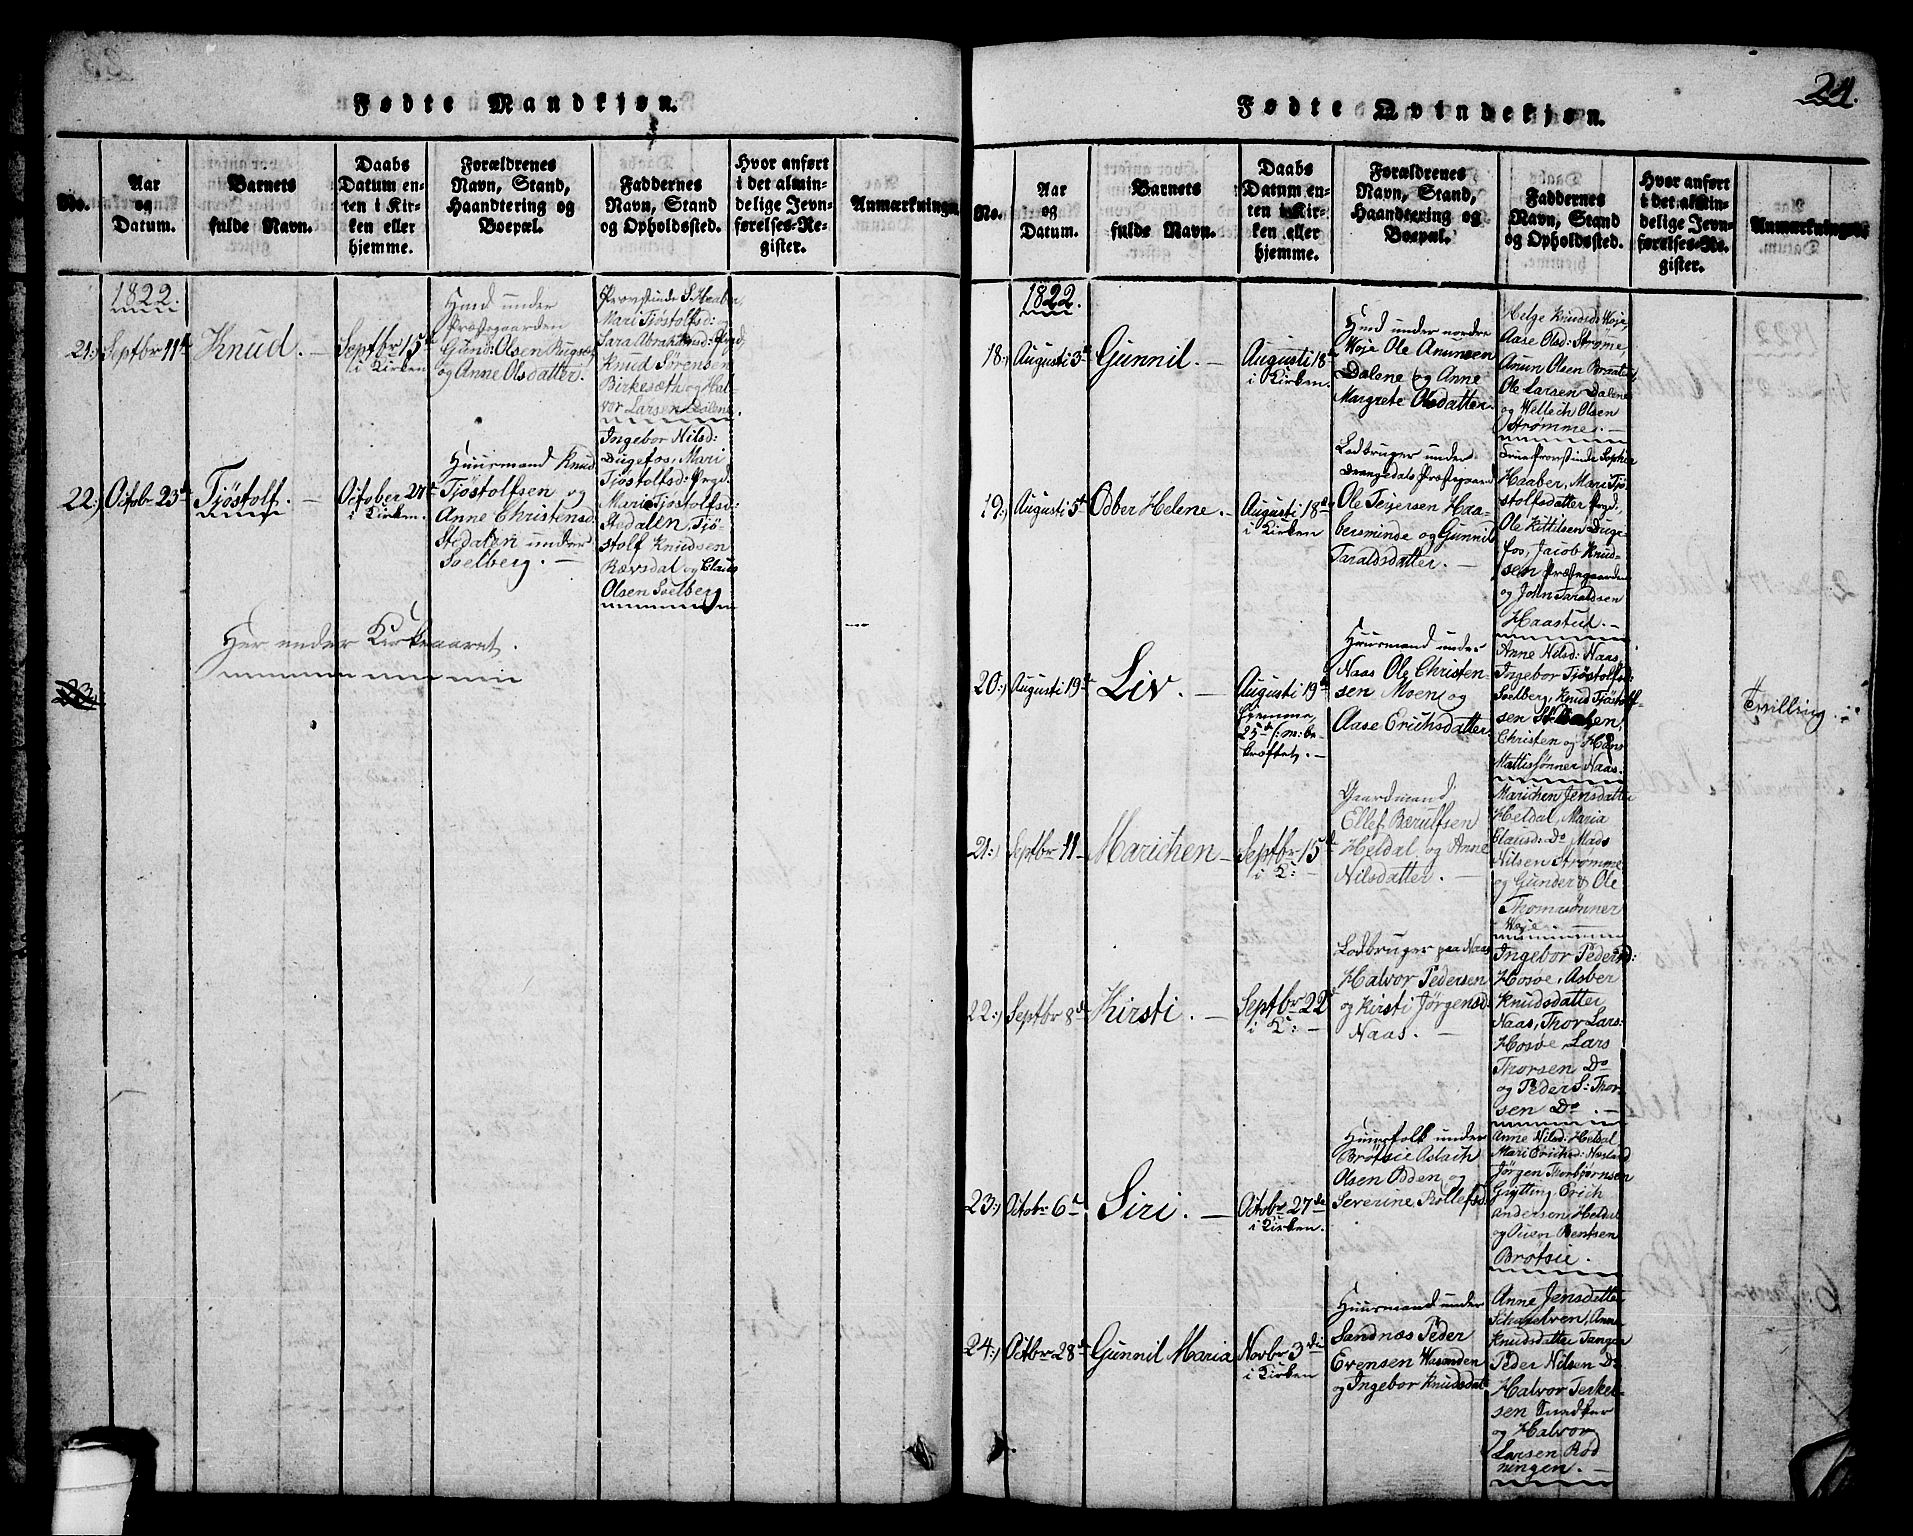 Fødte Mandkjøn.
No.
Aar
og
Datum.
Barnets
fulde Navn.
Daabs
Datum en-
ten i Kir-
ken eller
hjemme.
Forældrenes
Navn, Stand,
Haandtering og
Boepæl.
Faddernes
Navn, Stand
og Opholdssted.
Hvor anført
i det almin-
delige Jevn-
førelses-Re-
gister.
Anmærkninger
1822.
21:) Septbr 11te
Knud. –
Septbr 15de
i Kirken
Huusd under
Præstegaarden
Gund: Olsen
og Anne Olsdatter.
Provstinde S. Haaber,
Mari Tjøstolfsd:
Sara Abrahamsd: Prgd,
Knud Sørensen
Birkesæth og Hal-
vor Larsen Dalene.
22:) Octob- 23de
Tjøstolf. –
October 27de
i Kirken.
Huusmand Knud
Tjøstolfsen og
Anne Christensd:
Stedalen under
Soelberg. –
Ingebor Nilsd:
Dugefos, Mari
Tjøstolfsd: Prgd.
Mari Tjøstolfsd:
Stedalen, Tjø-
stolf Knudsen
Rævsdal og Claus
Olsen Soelberg
Her ender Kirkeaaret.
23.
24.
Fødte Qvindekjøn.
No.
Aar
og
Datum.
Barnets
fulde Navn.
Daabs
Datum en-
ten i Kir-
ken eller
hjemme.
Forældrenes
Navn, Stand,
Haandtering og
Boepæl.
Faddernes
Navn, Stand
og Opholdssted.
Hvor anført
i det almin-
delige Jevn-
førelses-Re-
gister.
Anmærkninger
1822.
18:) Augusti 3de
Gunnil. –
Augusti 18de
i Kirken.
Huusd under nordre
Woje Ole Anunsen
Dalene og Anne
Margrete Olsdatter.
Helge Knudsd: Woje,
Aase Olsd: Strøme,
Anun Olsen
Ole Larsen Dalene
og Wettech Olsen
Strømme. –
19:) Augusti 5te
Odber Helene. –
Augusti 18de
i Kirken
Lodbruger under
Drangedals Præstegaard
Ole Terjersen Haa-
bersminde og Gunnil
Taraldsdatter. –
Provstinde Sophie
Haaber, Mari Tjø-
stolfsdatter Prgd:,
Ole Kittilsen Duge-
fos, Jacob Knud-
sen Præstegaarden
og John Taraldsen
Haastul. –
20:) Augusti 19de
Liv. –
Augusti 19de
hjemme,
25de be-
kræftet. –
Huusmand under
Naas Ole Christen-
sen Moen og
Aase Erichsdatter.
Anne Nilsd: Naas,
Ingebor Tjøstolfsd:
Soelberg, Knud Tjøstolf-
sen Stedalen,
Christen og Hans
Mattissønner Naas.
Tvilling.
21:) Septbr 11 –
Marichen –
Septbr 15de
i K: –
Gaardmand
Ellef Bærulfsen
Heldal og Anne
Nilsdatter. –
Marichen Jensdatter
Heldal, Maria
Clausd: Do Mads
Nilsen Strømme
og Gunder & Ole
Thomasønner
Woje. –
22:) Septbr 8de
Kirsti. –
Septbr 22de
i K: –
Lodbruger paa Naas
Halvor Pedersen
og Kirsti Jørgensd:
Naas. –
Ingebor Pedersd:
Hosve, Asber
Knudsdatter
Naas, Thor Lars:
Hosve, Lars
Thorsen Do
og Peder S: Thor-
sen Do. –
23:) Octobr 6te
Siri. –
Octobr 27de
i Kirken.
Huusfolk under
Brøtsie Aslach
Olsen Odden og
Severine Rollefsd:
Anne Nilsd: Heldal
Mari Erichsd: Næsland
Jørgen Thorbjørnsen
Grytting Erich
Andersen Heldal
og Bentsen
Brøtsie.
24:) Octbr 28de
Gunnil Maria
Novbr 3die
i Kirken
Huusmand under
Sandnæs Peder
Evensen Wasenden
og Ingebor Knudsdat-
Anne Jensdatter
Anne
Knudsdatter Tangen
Peder Nilsen Do
Halvor Terkel-
sen Snedker
og Halvor
Larsen Rød-
ningen. –